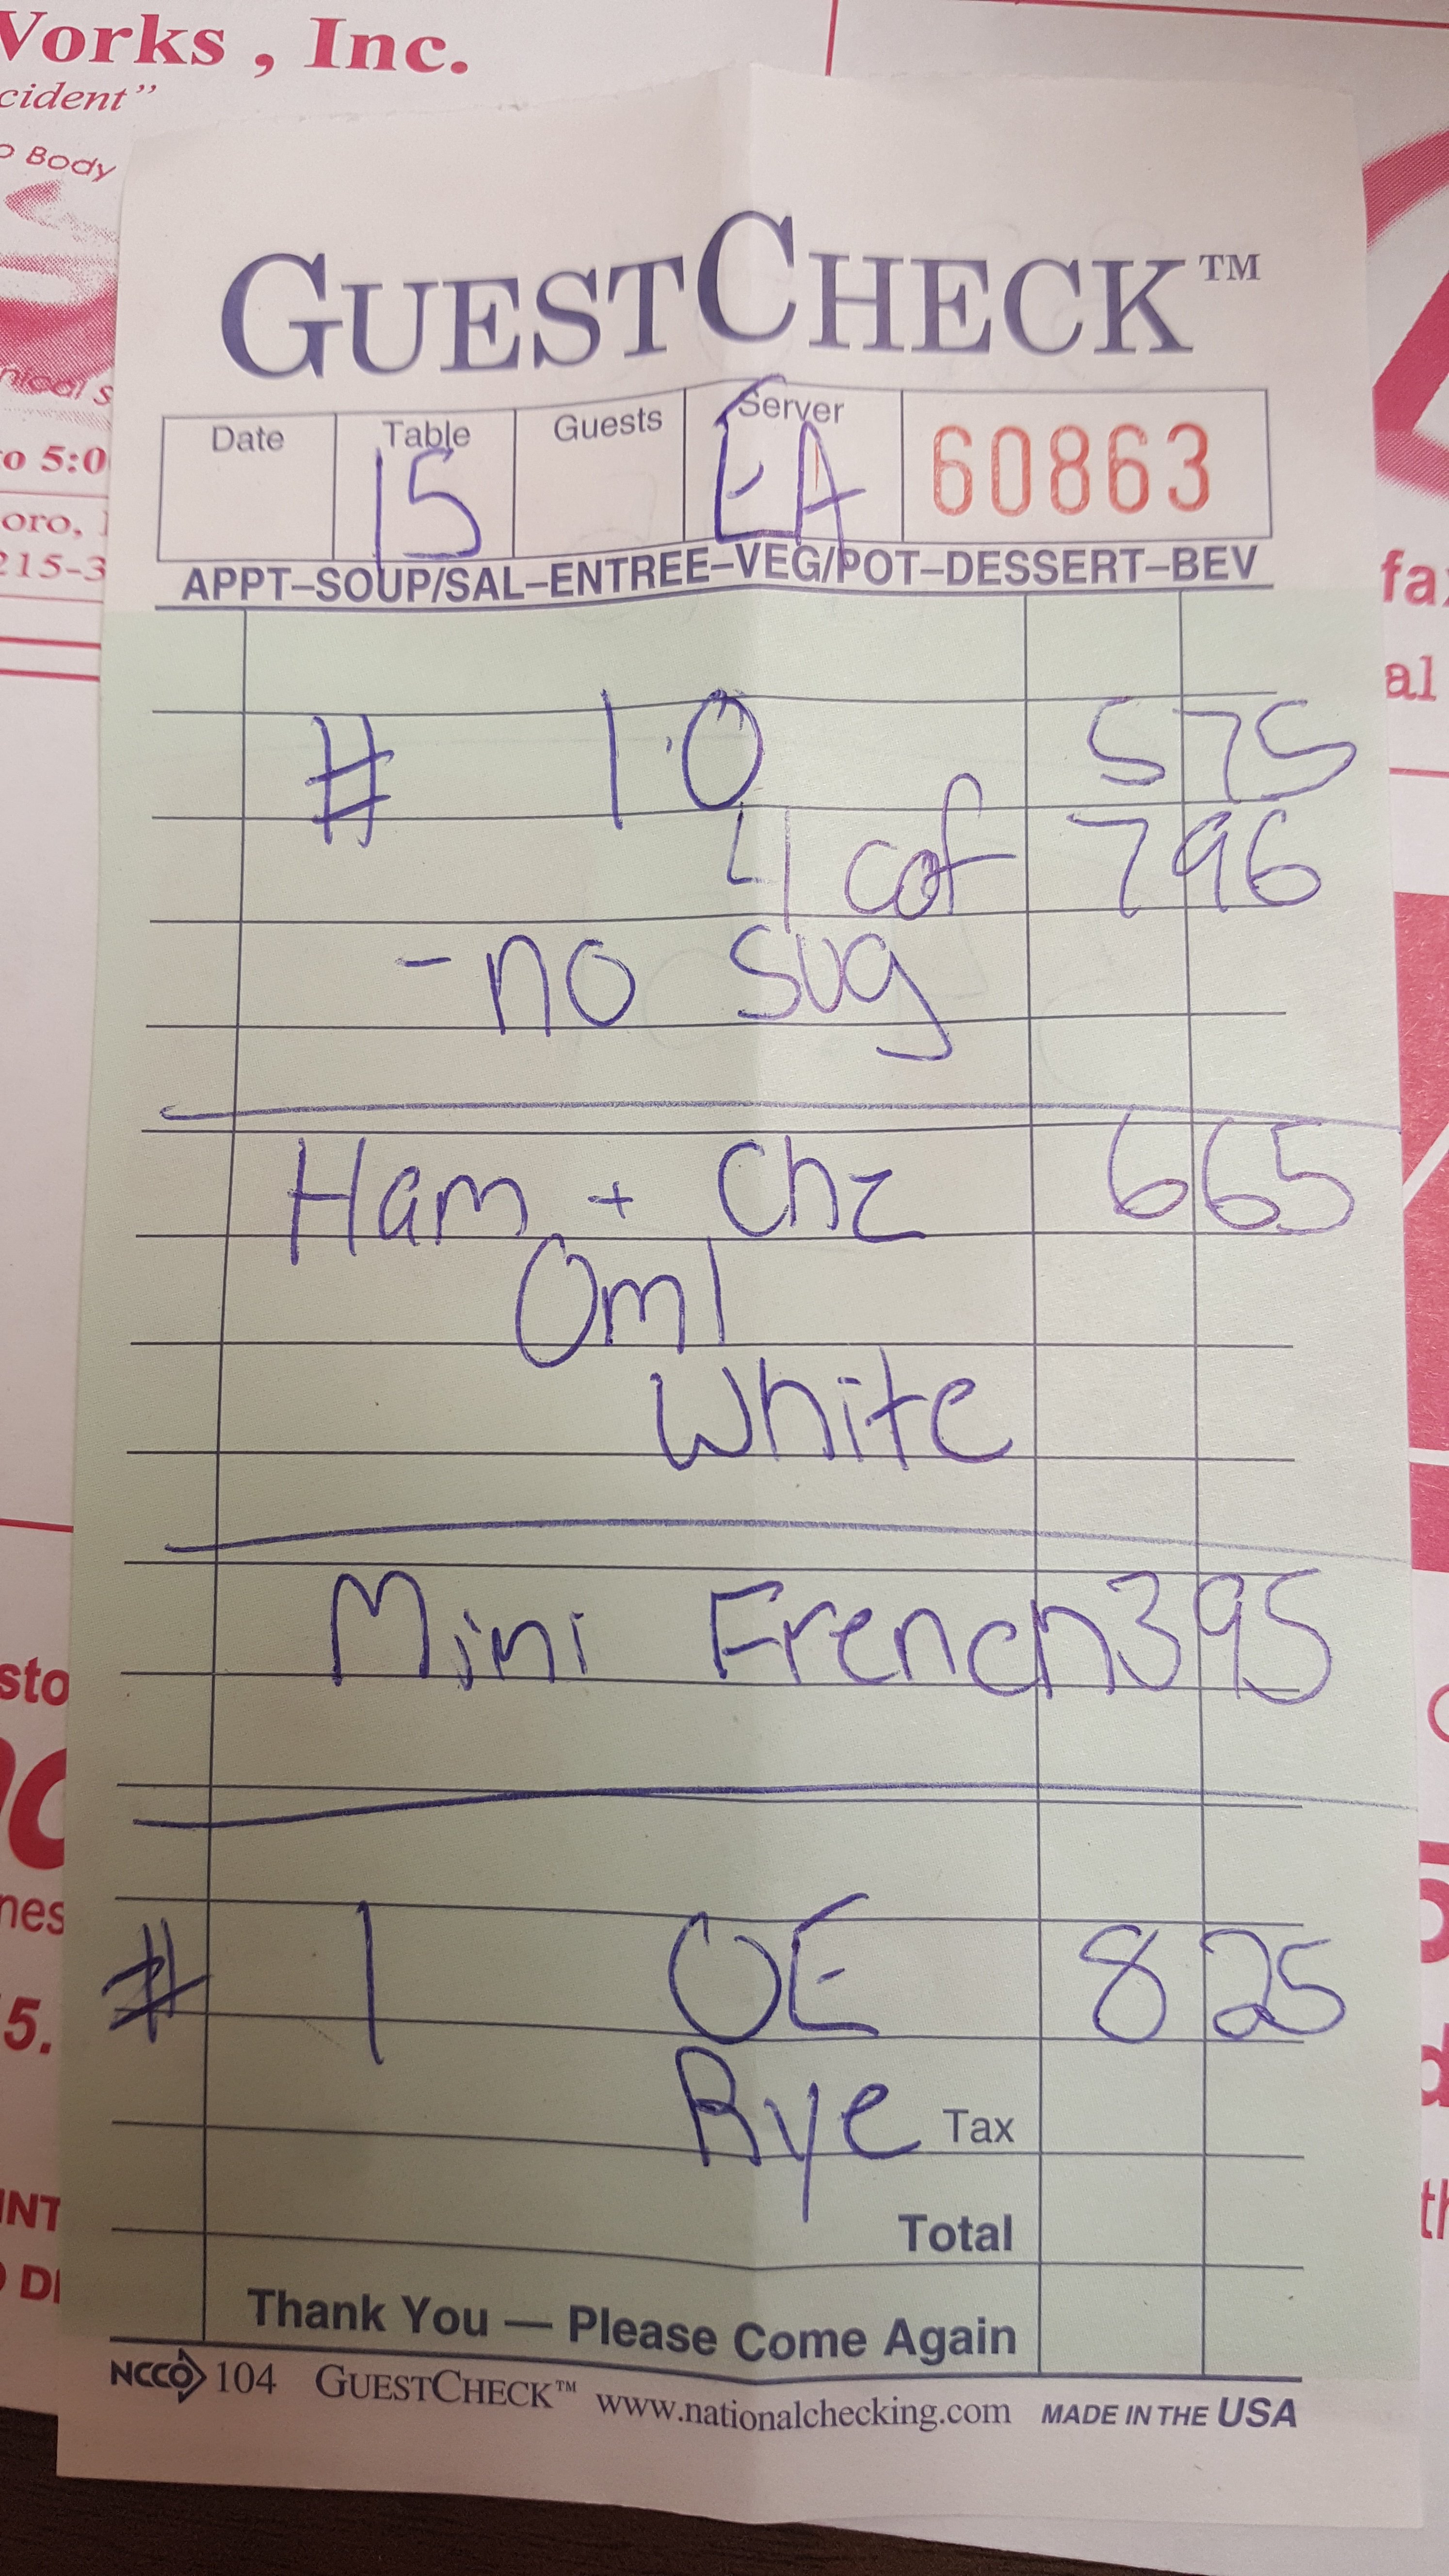 Works , Inc.
cident”
o Body
nical s
o 5:0
oro,
215-3
GUESTCHECK™
Date Table Guests Server
15 EA 60863
APPT–SOUP/SAL–ENTREE–VEG/POT–DESSERT–BEV
# 10 575
4 cof 796
-no sug
Ham + Chz 665
Oml
White
Mini French 395
# 1 OE 825
Rye Tax
Total
Thank You — Please Come Again
NCCO 104 GUESTCHECK™ www.nationalchecking.com MADE IN THE USA
fa
al
sto
nes
5.
INT
DI
th